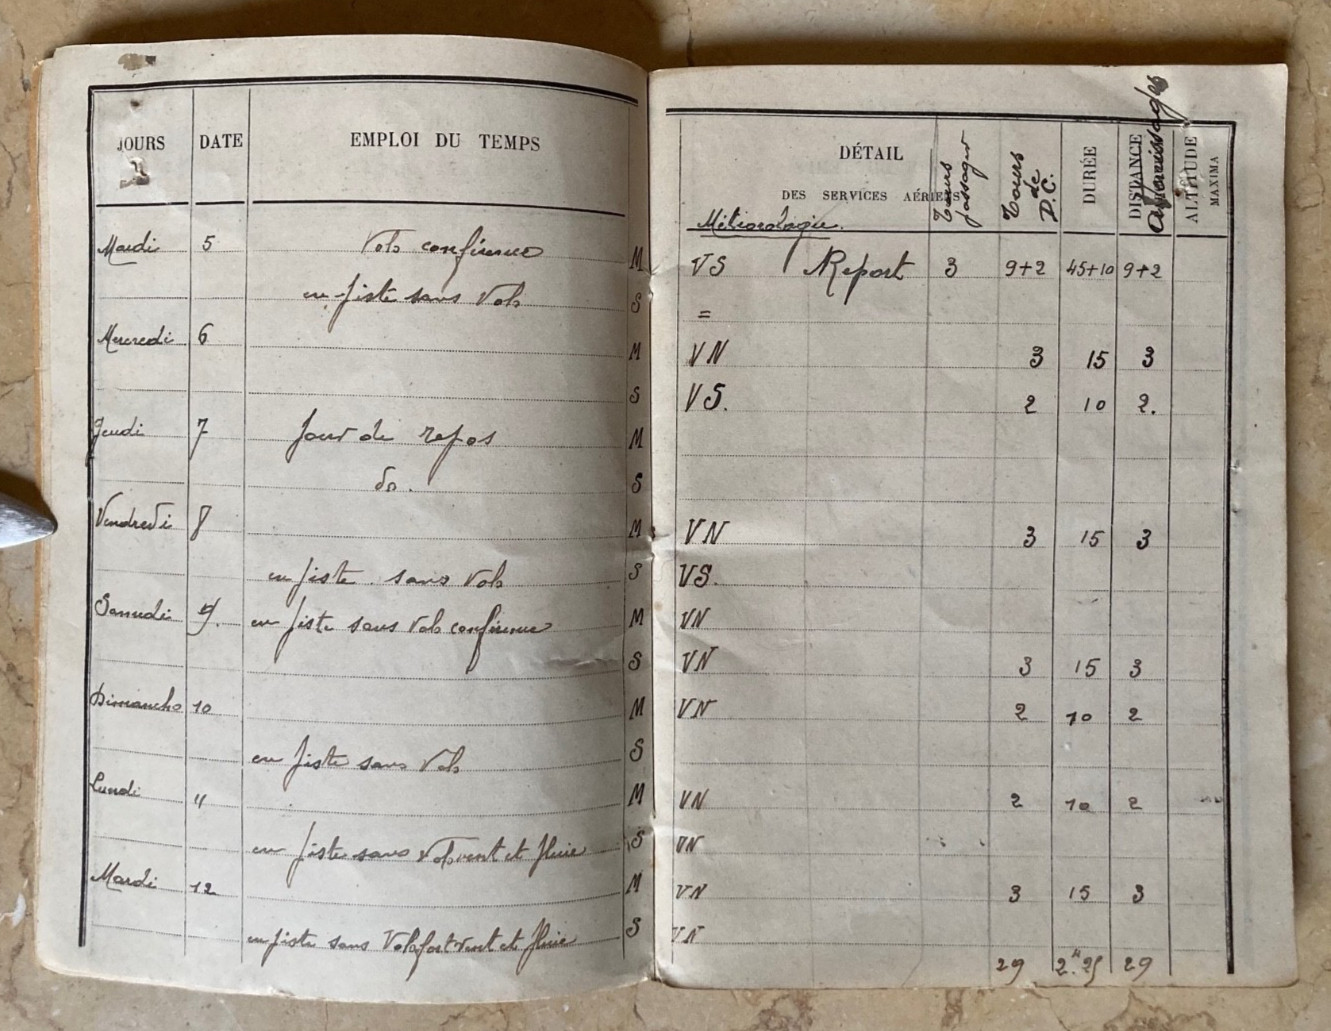 JOURS DATE EMPLOI DU TEMPS
Mardi 5 Vols conférence M
en piste sans Vols S
Mercredi 6 M
S
Jeudi 7 Jour de repos M
do. S
Vendredi 8 M
en piste sans Vols S
Samedi 9. en piste sans Vols conférence M
S
Dimanche 10 M
en piste sans Vols S
Lundi 11 M
en piste sans Vols vent et pluie S
Mardi 12 M
en piste sans Vols fort vent et pluie S
DÉTAIL
DES SERVICES AÉRIENS
Tours passager
Tours de D.C.
DURÉE
DISTANCE
Atterrissages
ALTITUDE MAXIMA
Météorologie.
VS Report 3 9+2 45+10 9+2
=
VN 3 15 3
VS. 2 10 2.
VN 3 15 3
VS.
VN
VN 3 15 3
VN 2 10 2
VN 2 10 2
VN
VN 3 15 3
VN
29 2h.25 29